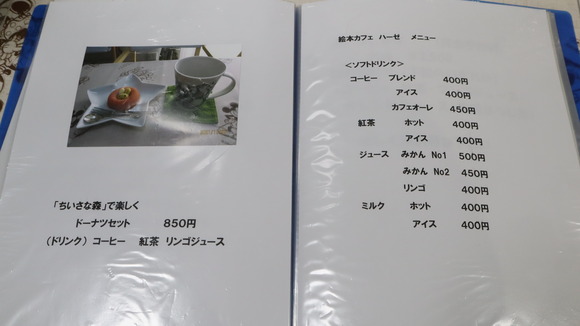 「ちいさな森」で楽しく
ドーナツセット 850円
(ドリンク) コーヒー 紅茶 リンゴジュース
絵本カフェ ハーゼ メニュー
<ソフトドリンク>
コーヒー ブレンド 400円
アイス 400円
カフェオーレ 450円
紅茶 ホット 400円
アイス 400円
ジュース みかん No1 500円
みかん No2 450円
リンゴ 400円
ミルク ホット 400円
アイス 400円